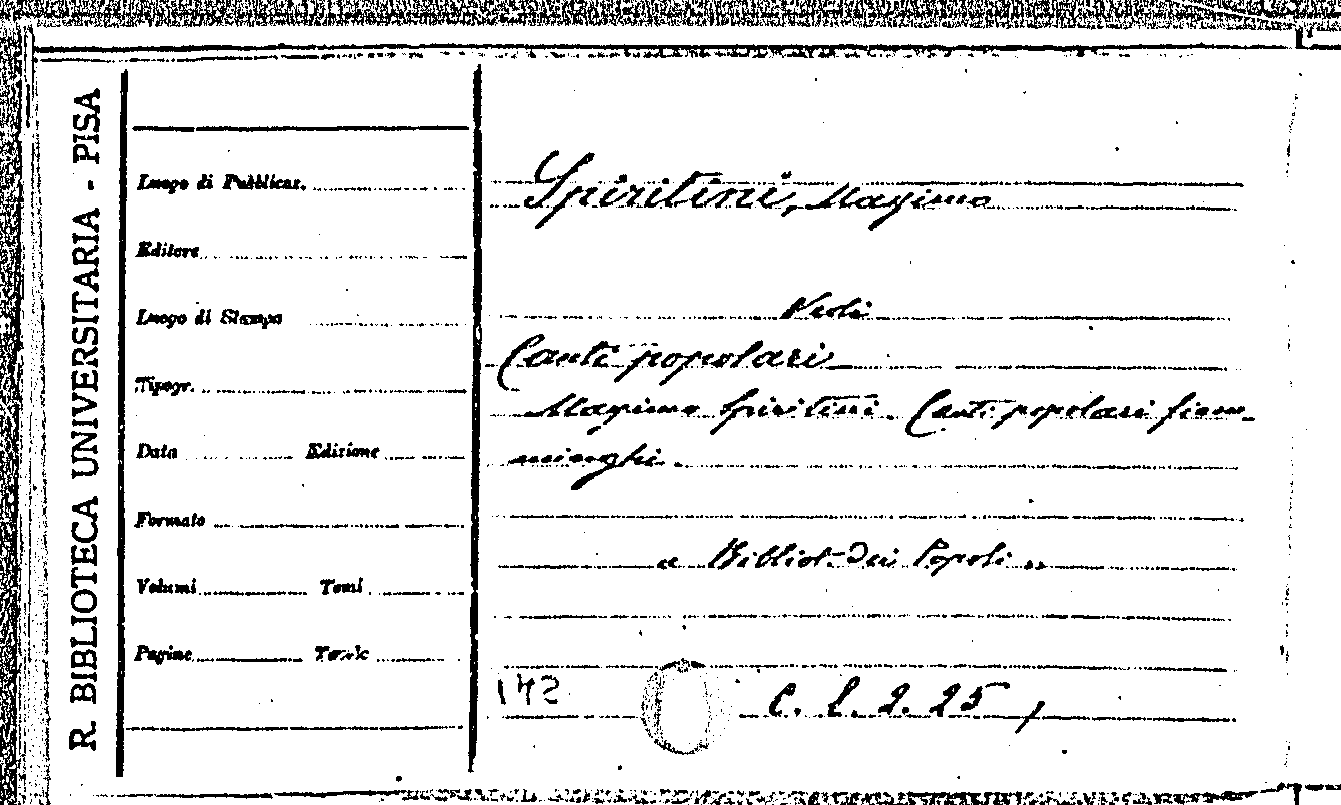 R. BIBLIOTECA UNIVERSITARIA - PISA
Luogo di Pubblicaz.
Editore
Luogo di Stampa
Tipogr.
Data Edizione
Formato
Volumi Tomi
Pagine Tavole
Spiritini, Massimo
Vedi
Canti popolari
Massimo Spiritini. Canti popolari fiam-
minghi.
« Bibliot. Dei Popoli »
142
C. l. 2. 25